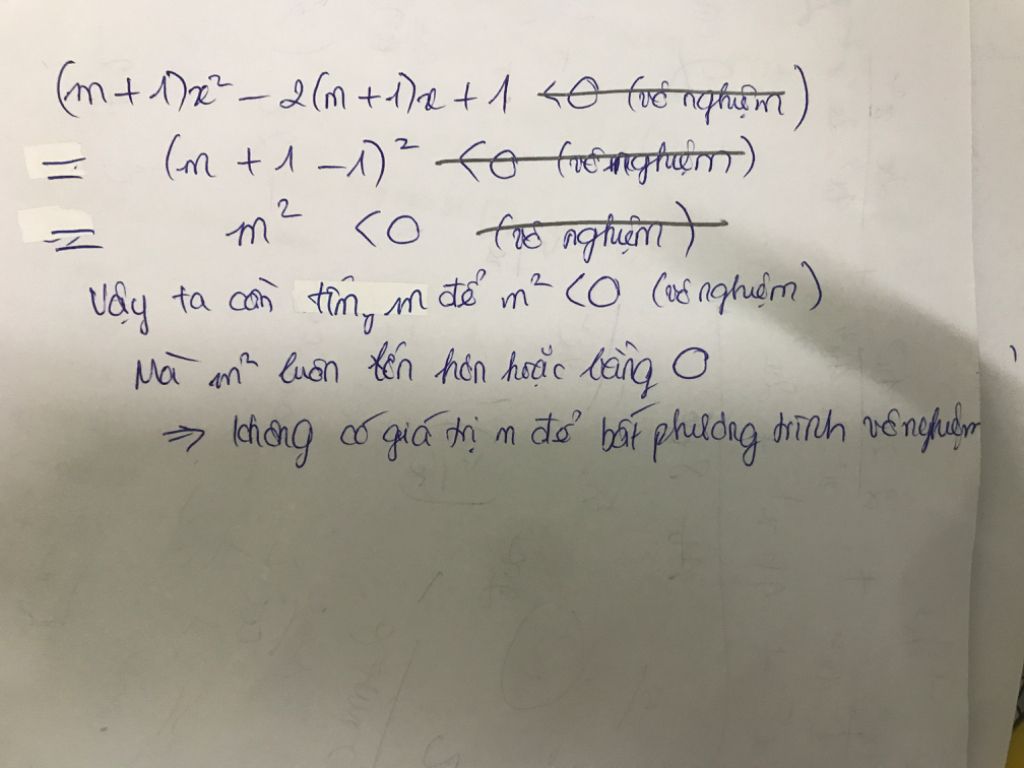 (m + 1)x² - 2(m + 1)x + 1 < 0 (vô nghiệm)
= (m + 1 - 1)² < 0 (vô nghiệm)
= m² < 0 (vô nghiệm)
Vậy ta cần tìm m để m² < 0 (vô nghiệm)
Mà m² luôn lớn hơn hoặc bằng 0
⇒ không có giá trị m để bất phương trình vô nghiệm